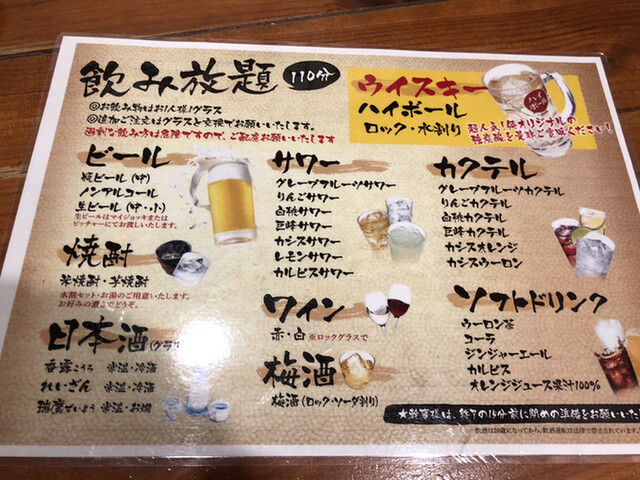 飲み放題 110分
◎お飲み物はお1人様1グラス
◎追加ご注文はグラスと交換でお願いいたします。
過剰な飲み方は危険ですので、ご配慮お願いいたします
ウイスキー
ハイボール
ロック・水割り
ハイボール
超人気!
ビール
瓶ビール(中)
ノンアルコール
生ビール(中・小)
生ビールはマイジョッキまたは
ピッチャーにてお渡しいたします。
焼酎
米焼酎・芋焼酎
水割セット・お湯のご用意いたします。
お好みの濃さでどうぞ。
日本酒
れいざん
サワー
グレープフルーツサワー
りんごサワー
白桃サワー
巨峰サワー
カシスサワー
レモンサワー
カルピスサワー
ワイン
赤・白 ※ロックグラスで
梅酒
梅酒(ロック・ソーダ割り)
カクテル
グレープフルーツカクテル
りんごカクテル
白桃カクテル
巨峰カクテル
カシスオレンジ
カシスウーロン
ソフトドリンク
ウーロン茶
コーラ
ジンジャーエール
カルピス
オレンジジュース果汁100%
★幹事様は、終了の15分前に閉めの準備をお願いいた
飲酒は20歳になってから。飲酒運転は法律で禁止されています。